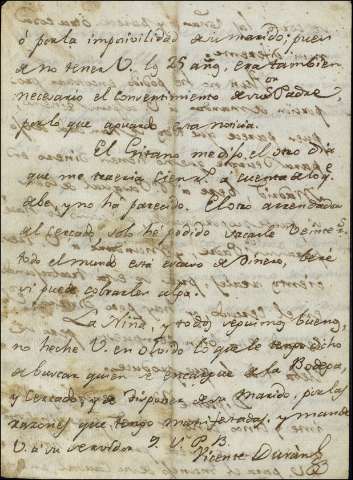 ó por la imposivilidad de su marido; pues
de no tener V. los 25 años, era tambien
necesario el consentimiento de su Padre,
por lo que aguardo esta noticia.
El Gitano me dijo el otro dia
que me traeria cien rs. a cuenta de lo q.e
debe, y no ha parecido. El otro arrendador
del cercado, solo he podido sacarle veinte rs.
todo el mundo está escaso de dinero, veré
si puedo cobrarles algo.
La Niña, y todos seguimos buenos,
no heche V. en olvido lo que le tengo dicho
de buscar quien se encargue de la Bodega,
y Cercado, y se disponer de su marido, por las
razones que tengo manifestadas, y mande
V. a su servidor Q. S. P. B.
Vicente Durán